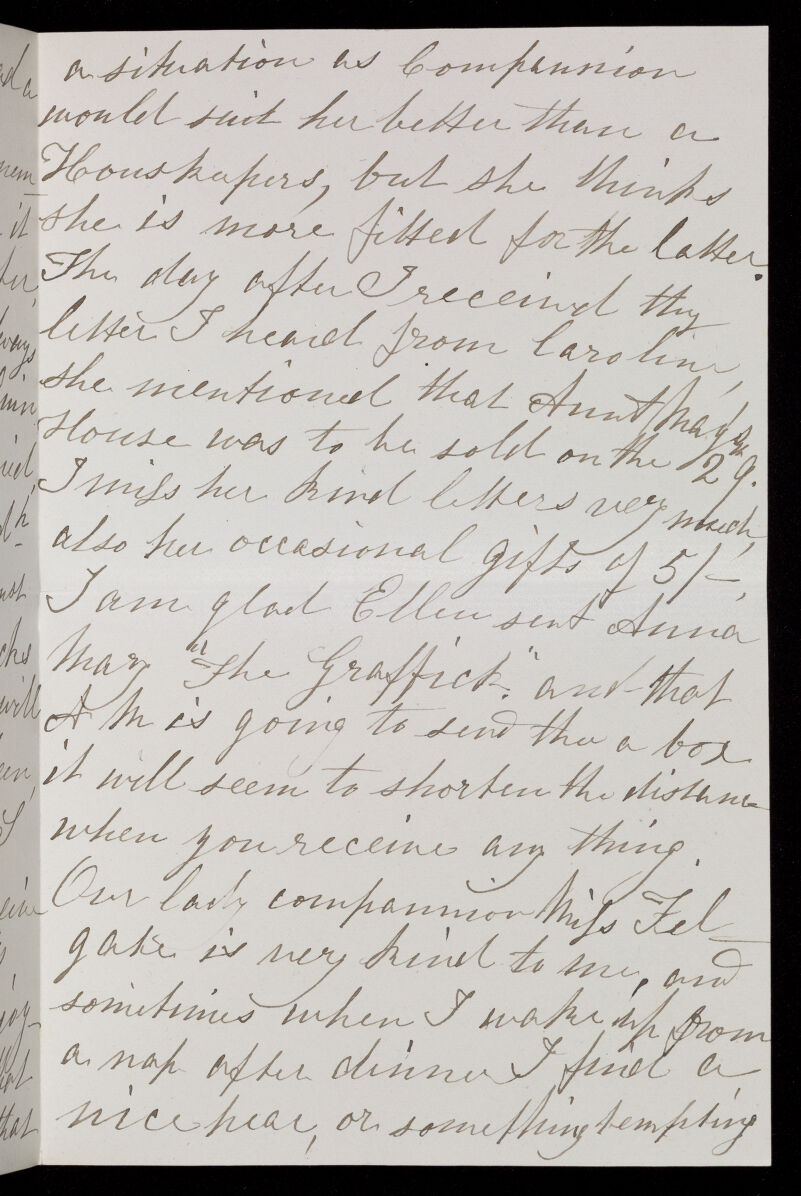 a situation as Compannion
would suit her better than a
Houskepers, but she thinks
she is more fitted for the latter.
The day after I received thy
letter I heard from Caroline,
she mentioned that Aunt May's
House was to be sold on the 29.
I miss her kind letters very much,
also her occasional gifts of 5/-,
I am glad Ellen sent Anna
Mary "The Graffick". and that
A M is going to send thee a box
it will seem to shorten the distance
when you receive any thing.
Our lady compannion Miss Fel-
gate is very kind to me, and
sometimes when I wake up from
a nap after dinner I find a
nice pear, or something tempting